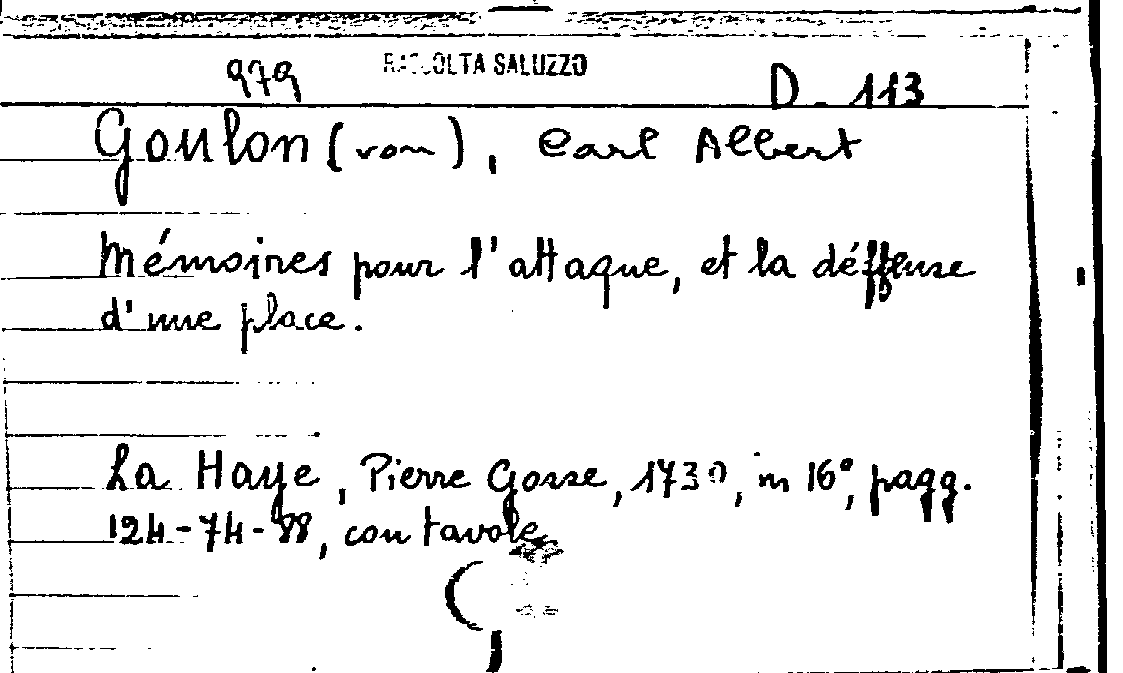 979 RACCOLTA SALUZZO D. 113
Goulon (von), Carl Albert
Mémoires pour l'attaque, et la déffense
d'une place.
La Haye, Pierre Gosse, 1730, in 16°, pagg.
124-74-88, con tavole